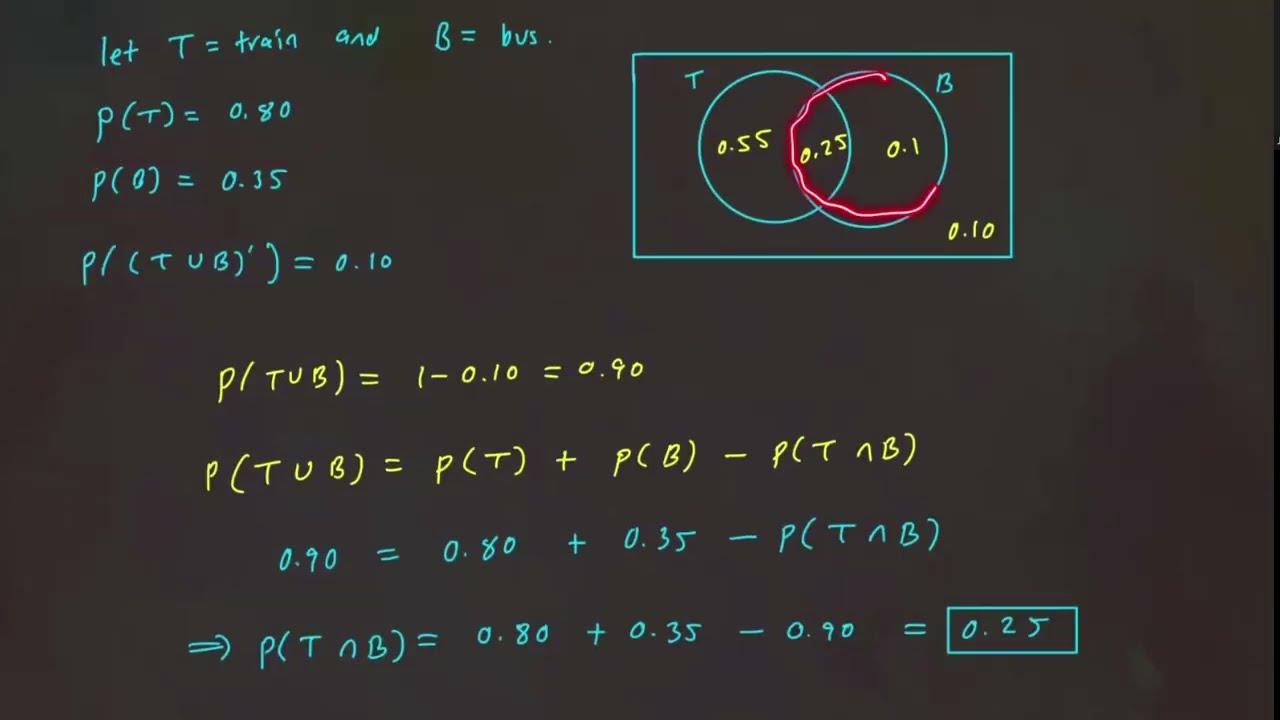 let T = train and B = bus.
P(T) = 0.80
P(B) = 0.35
P((T ∪ B)') = 0.10
T B
0.55 0.25 0.1
0.10
P(T∪B) = 1 - 0.10 = 0.90
P(T ∪ B) = P(T) + P(B) - P(T ∩ B)
0.90 = 0.80 + 0.35 - P(T ∩ B)
⇒ P(T ∩ B) = 0.80 + 0.35 - 0.90 = 0.25